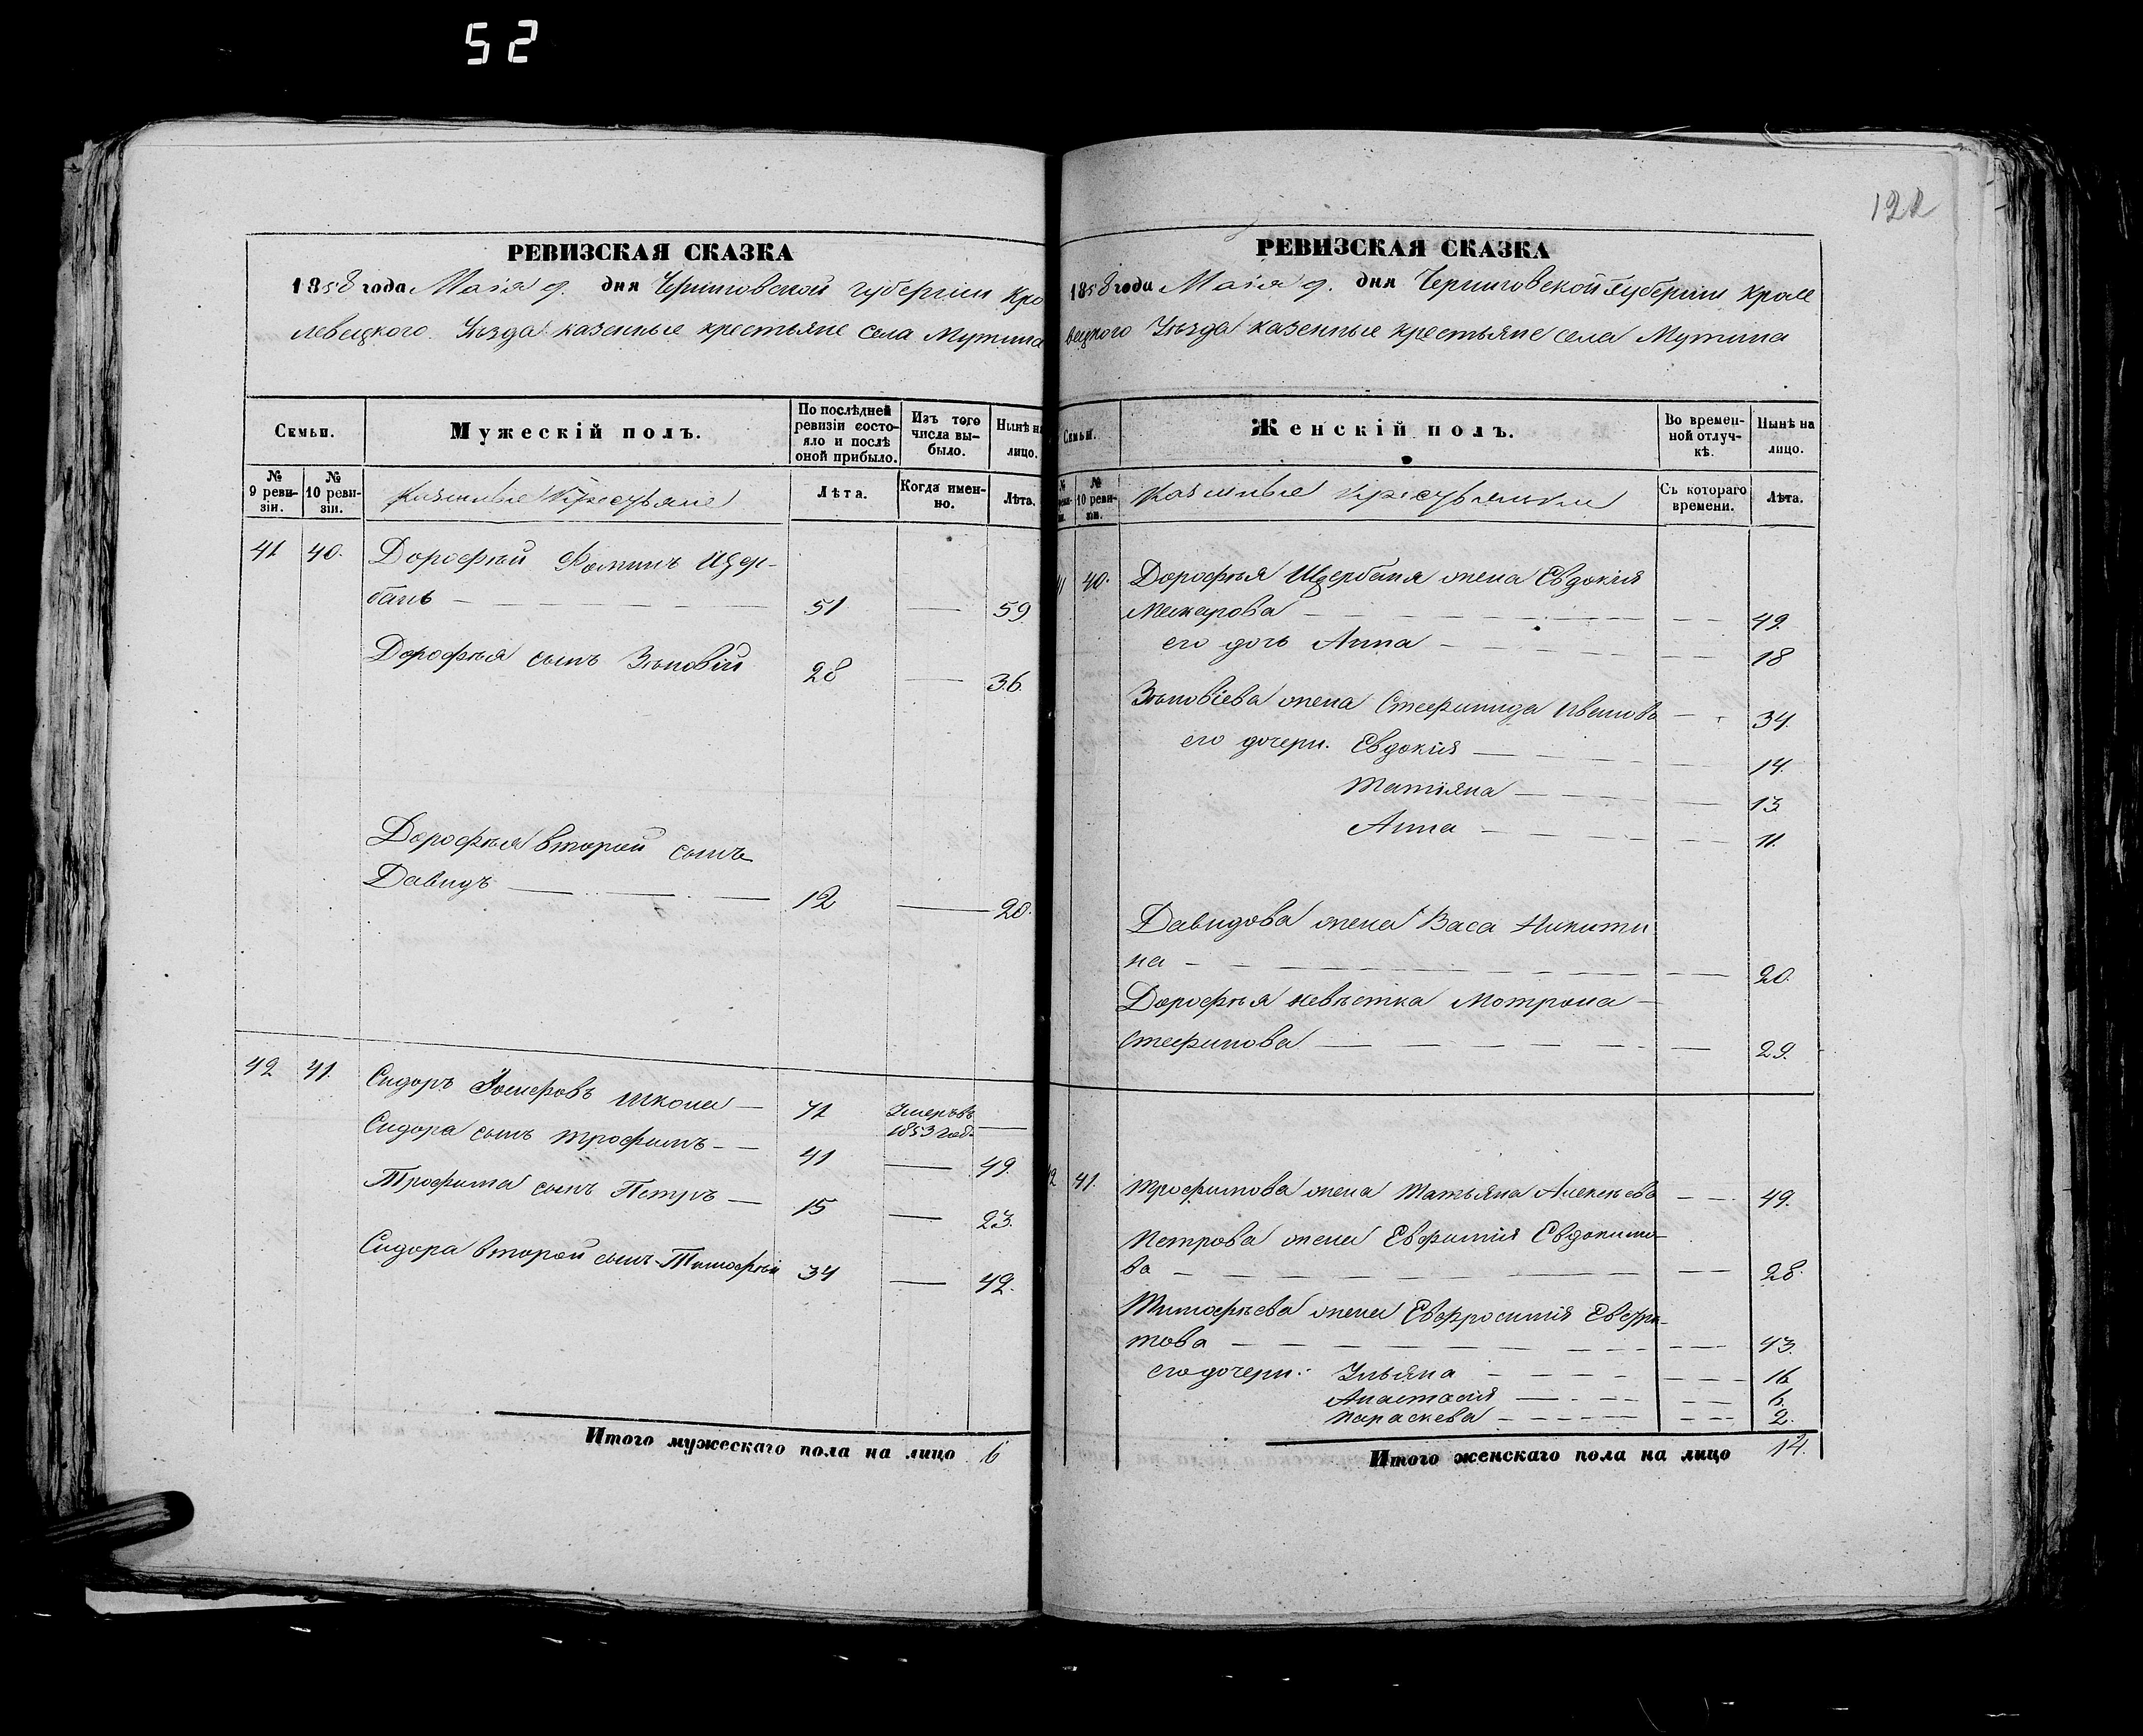 52
122
РЕВИЗСКАЯ СКАЗКА
1858 года Маія 9. дня Черниговской губерніи Кро
левецкого Уѣзда казенные крестьяне села Мутина
Семьи.
Мужескій полъ.
По послѣдней ревизіи состояло и послѣ оной прибыло.
Изъ того числа выбыло.
Нынѣ на лицо.
№ 9 ревизіи.
№ 10 ревизіи.
Казенные Крестьяне
Лѣта.
Когда именно.
Лѣта.
41 40. Дорофѣй Фоминъ Щер-
бань — 51 — 59.
Дорофѣя сынъ Зѣновій 28 — 36.
Дорофѣя второй сынъ
Давидъ — 12 — 20.
42 41. Сидоръ Шкома — 71 Умеръ въ
1853 год. —
Сидора сынъ Трофимъ — 41 — 49.
Трофима сынъ Петръ — 15 — 23.
Сидора второй сынъ Тимофѣй 34 — 42.
Итого мужескаго пола на лицо 6
РЕВИЗСКАЯ СКАЗКА
1858 года Маія 9. дня Черниговской Губерніи Кроле
вецкого Уѣзда казенные крестьяне села Мутина
Семьи.
Женскій полъ.
Во временной отлучкѣ.
Нынѣ на лицо.
№ 10 ревизіи.
Казенные крестьянки
Съ котораго времени.
Лѣта.
41 40. Дорофѣя Щербаня жена Евдокія
Макарова — 49.
его дочь Анна — 18
Зѣновіева жена Стефанида Иванова — 34.
его дочери: Евдокія — 14.
Татіяна — 13
Анна — 11.
Давидова жена Васа Никити
на — 20.
Дорофѣя невѣстка Мотрона
Стефанова — 29.
42 41. Трофимова жена Татьяна Алексѣева — 49.
Петрова жена Евфимія Евдокимо-
ва — 28.
Тимофѣева жена Евфросинія
— 43.
его дочери: Ульяна — 16
Анастасія — 6.
Параскева — 2.
Итого женскаго пола на лицо 14.